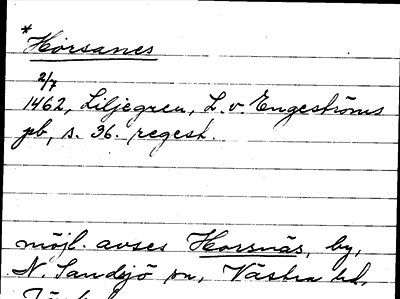 *Horsanes
2/7
1462, Liljegren, L. v. Engeströms
pb, s. 96. regest.
möjl. avses Horsnäs, by,
N. Sandsjö sn, Västra hd,